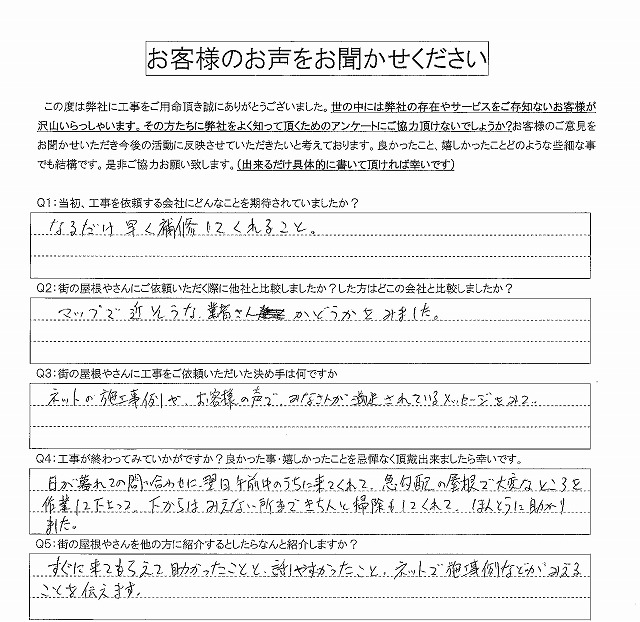 お客様のお声をお聞かせください
この度は弊社に工事をご用命頂き誠にありがとうございました。世の中には弊社の存在やサービスをご存知ないお客様が
沢山いらっしゃいます。その方たちに弊社をよく知って頂くためのアンケートにご協力頂けないでしょうか?お客様のご意見を
お聞かせいただき今後の活動に反映させていただきたいと考えております。良かったこと、嬉しかったことどのような些細な事
でも結構です。是非ご協力お願い致します。(出来るだけ具体的に書いて頂ければ幸いです)
Q1:当初、工事を依頼する会社にどんなことを期待されていましたか?
なるだけ早く補修してくれること。
Q2:街の屋根やさんにご依頼いただく際に他社と比較しましたか?した方はどこの会社と比較しましたか?
マップで近そうな業者さんかどうかをみました。
Q3:街の屋根やさんに工事をご依頼いただいた決め手は何ですか
ネットの施工事例や、お客様の声で、みなさんが満足されているメッセージをみて。
Q4:工事が終わってみていかがですか?良かった事・嬉しかったことを忌憚なく頂戴出来ましたら幸いです。
日が暮れての問い合わせに、翌日午前中のうちに来てくれて、急勾配の屋根で大変なところを
作業して下さって、下からはみえない所まできちんと掃除もしてくれて、ほんとうに助かり
ました。
Q5:街の屋根やさんを他の方に紹介するとしたらなんと紹介しますか?
すぐに来てもらえて助かったことと、話しやすかったこと、ネットで施工事例などがみえる
ことを伝えます。